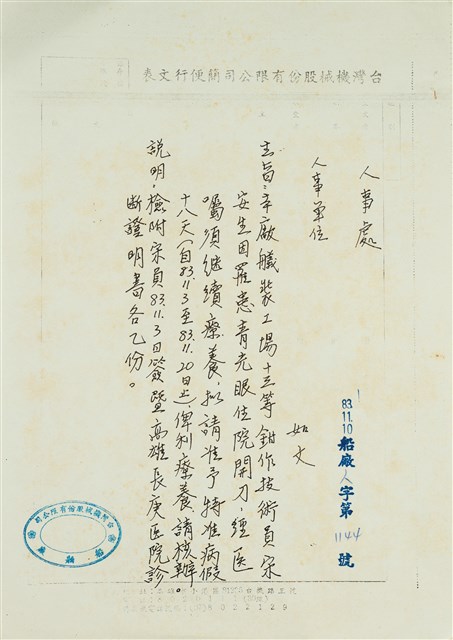 台灣機械股份有限公司簡便行文表
人事處
人事單位
如文
83.11.10
船廠人字第1144號
主旨：本廠艤裝工場十三等鉗作技術員宋
安生因罹患青光眼住院開刀，經医
囑須継續療養，拟請准予特准病假
十八天(自83.11.3至83.11.20日止)，俾利療養，請核辦。
說明：檢附宋員83.11.3日簽暨高雄長庚医院診
断證明書各乙份。
台灣機械股份有限公司